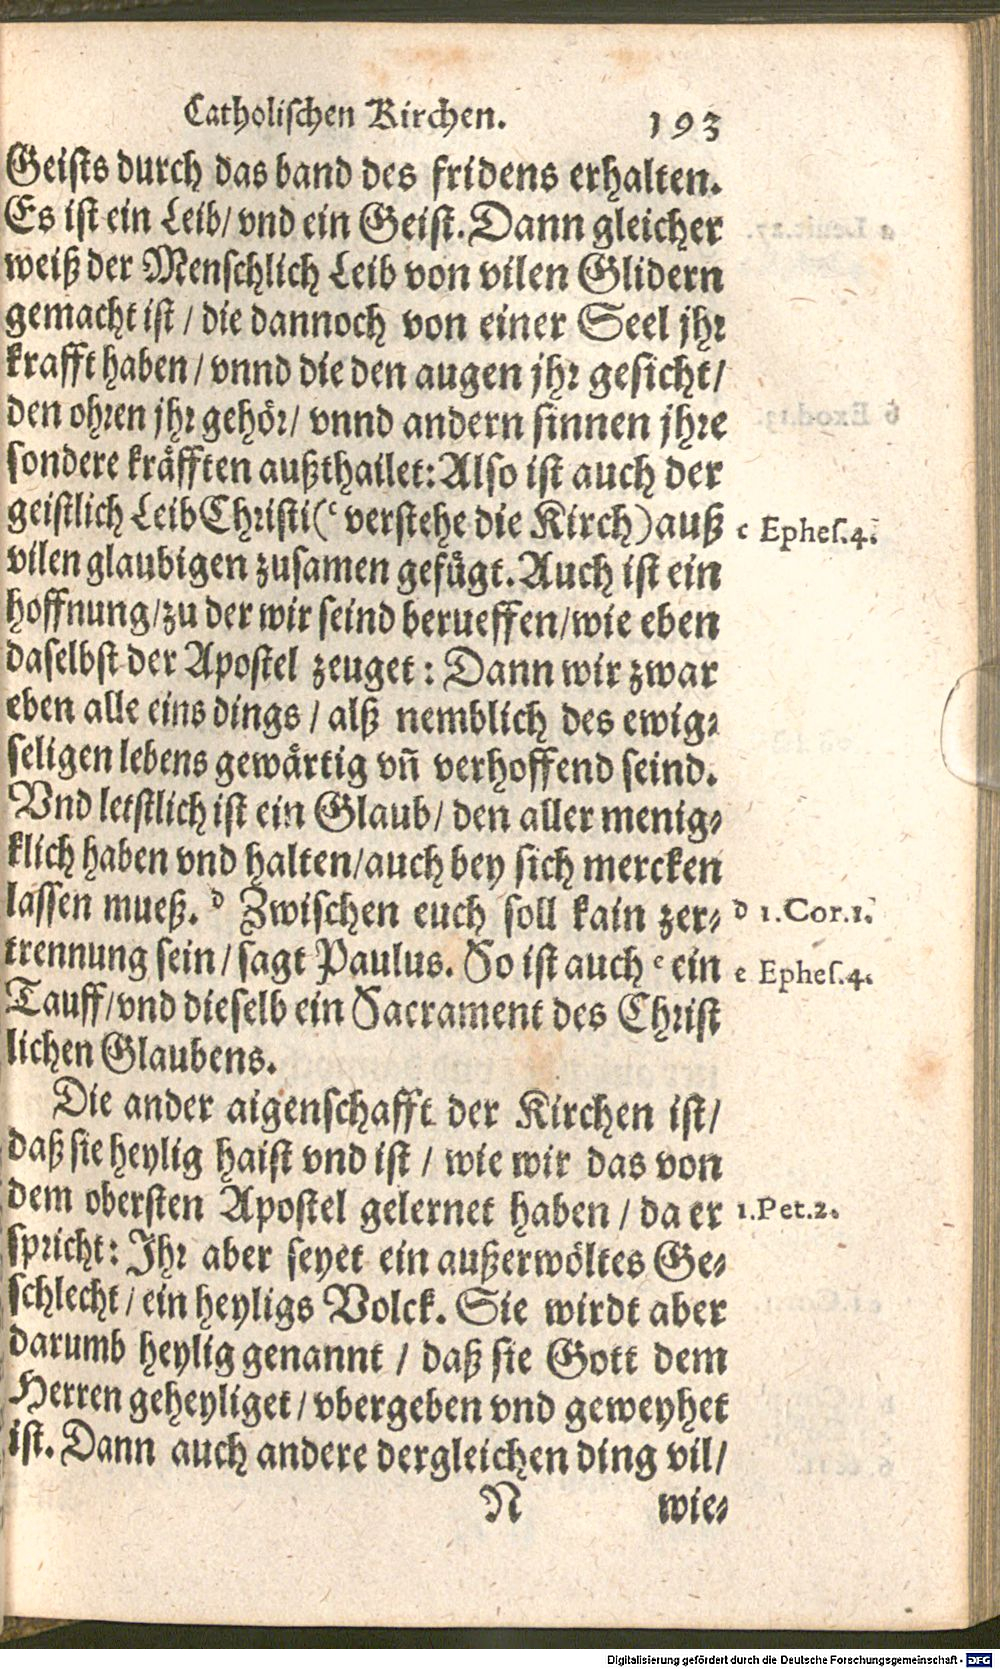 Catholischen Kirchen. 193
Geists durch das band des fridens erhalten.
Es ist ein Leib/ vnd ein Geist. Dann gleicher
weiß der Menschlich Leib von vilen Glidern
gemacht ist / die dannoch von einer Seel jhr
krafft haben / vnnd die den augen jhr gesicht/
den ohren jhr gehör/ vnnd andern sinnen jhre
sondere kräfften außthailet: Also ist auch der
geistlich Leib Christi (c verstehe die Kirch) auß
c Ephes.4.
vilen glaubigen zusamen gefügt. Auch ist ein
hoffnung/zu der wir seind berueffen/wie eben
daselbst der Apostel zeuget: Dann wir zwar
eben alle eins dings / alß nemblich des ewig-
seligen lebens gewärtig vñ verhoffend seind.
Vnd letstlich ist ein Glaub/ den aller menig-
klich haben vnd halten/auch bey sich mercken
lassen mueß. d Zwischen euch soll kain zer-
d 1.Cor.1.
trennung sein/ sagt Paulus. So ist auch e ein
e Ephes.4.
Tauff/vnd dieselb ein Sacrament des Christ
lichen Glaubens.
Die ander aigenschafft der Kirchen ist/
daß sie heylig haist vnd ist / wie wir das von
dem obersten Apostel gelernet haben / da er
1.Pet.2.
spricht: Jhr aber seyet ein außerwöltes Ge-
schlecht/ ein heyligs Volck. Sie wirdt aber
darumb heylig genannt / daß sie Gott dem
Herren geheyliget/ vbergeben vnd geweyhet
ist. Dann auch andere dergleichen ding vil/
N wie-
Digitalisierung gefördert durch die Deutsche Forschungsgemeinschaft - DFG